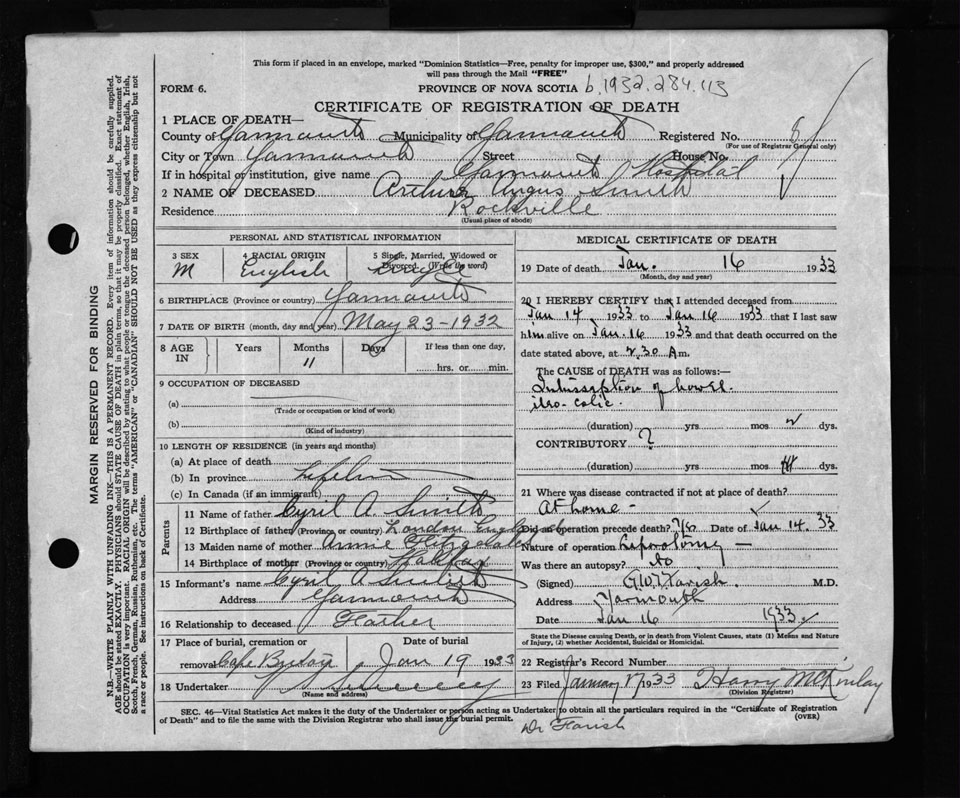 This form if placed in an envelope, marked "Dominion Statistics—Free, penalty for improper use, $300," and properly addressed
will pass through the Mail "FREE"
FORM 6.
PROVINCE OF NOVA SCOTIA b.1932.284.113
CERTIFICATE OF REGISTRATION OF DEATH
1 PLACE OF DEATH—
County of Yarmouth Municipality of Yarmouth Registered No. 8
(For use of Registrar General only)
City or Town Yarmouth Street House No.
If in hospital or institution, give name Yarmouth Hospital
2 NAME OF DECEASED Arthur Angus Smith
Residence Rockville
(Usual place of abode)
PERSONAL AND STATISTICAL INFORMATION
3 SEX 4 RACIAL ORIGIN 5 Single, Married, Widowed or
Divorced (Write the word)
M English Single
6 BIRTHPLACE (Province or country) Yarmouth
7 DATE OF BIRTH (month, day and year) May 23-1932
8 AGE IN Years Months Days If less than one day,
11 hrs. or min.
9 OCCUPATION OF DECEASED
(a)
(Trade or occupation or kind of work)
(b)
(Kind of industry)
10 LENGTH OF RESIDENCE (in years and months)
(a) At place of death
(b) In province
(c) In Canada (if an immigrant)
Parents
11 Name of father Cyril A Smith
12 Birthplace of father (Province or country) London England
13 Maiden name of mother Annie
14 Birthplace of mother (Province or country) Halifax
15 Informant's name Cyril A Smith
Address Yarmouth
16 Relationship to deceased Father
17 Place of burial, cremation or Date of burial
removal Jan 19 1933
18 Undertaker
(Name and address)
MEDICAL CERTIFICATE OF DEATH
19 Date of death Jan. 16 1933
(Month, day and year)
20 I HEREBY CERTIFY that I attended deceased from
Jan 14 1933 to Jan 16 1933 that I last saw
him alive on Jan. 16 1933 and that death occurred on the
date stated above, at 2.30 A m.
The CAUSE of DEATH was as follows:
Intussseption of bowel.
ileo-colic.
(duration) yrs mos 2 dys.
CONTRIBUTORY ?
(duration) yrs mos dys.
21 Where was disease contracted if not at place of death?
At home –
Did an operation precede death? Yes Date of Jan 14. 33
Nature of operation Laporotomy —
Was there an autopsy? No
(Signed) G.W.T. Farish. M.D.
Address Yarmouth
Date Jan 16 1933
State the Disease causing Death, or in death from Violent Causes, state (1) Means and Nature
of Injury, (2) whether Accidental, Suicidal or Homicidal.
22 Registrar's Record Number
23 Filed January 17 1933 Harry McKinlay
(Division Registrar)
SEC. 46—Vital Statistics Act makes it the duty of the Undertaker or person acting as Undertaker to obtain all the particulars required in the "Certificate of Registration
of Death" and to file the same with the Division Registrar who shall issue the burial permit. (OVER)
Dr Farish
MARGIN RESERVED FOR BINDING
N.B.—WRITE PLAINLY WITH UNFADING INK—THIS IS A PERMANENT RECORD. Every item of information should be carefully supplied.
AGE should be stated EXACTLY. PHYSICIANS should STATE CAUSE OF DEATH in plain terms, so that it may be properly classified. Exact statement of
OCCUPATION is very important. RACIAL ORIGIN will be described by stating to what people or tongue the deceased person belonged, whether English, Irish,
Scotch, French, German, Russian, Ruthenian, etc. The terms "AMERICAN" or "CANADIAN" SHOULD NOT BE USED as they express citizenship but not
a race or people. See instructions on back of Certificate.